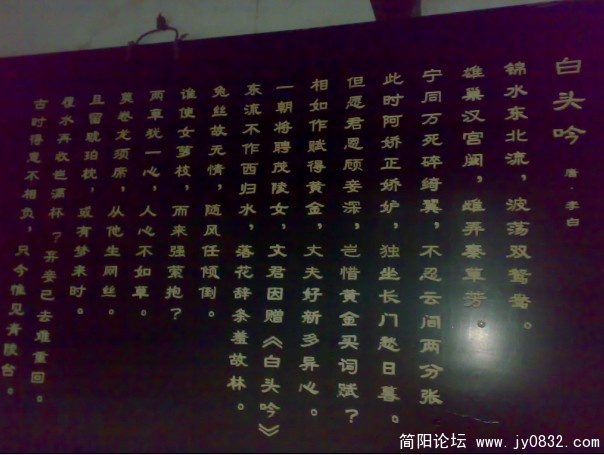 白头吟
唐·李白
锦水东北流，波荡双鸳鸯。
雄巢汉宫阁，雌弄秦草芳。
宁同万死碎绮翼，不忍云间两分张
此时阿娇正娇妒，独坐长门愁日暮。
但愿君恩顾妾深，岂惜黄金买词赋？
相如作赋得黄金，丈夫好新多异心。
一朝将聘茂陵女，文君因赠《白头吟》
东流不作西归水，落花辞条羞故林。
兔丝故无情，随风任倾倒。
谁使女萝枝，而来强萦抱？
两草犹一心，人心不如草。
莫卷龙须席，从他生网丝。
且留琥珀枕，或有梦来时。
覆水再收岂满杯？弃妾已去难重回。
古时得意不相负，只今惟见青陵台。
简阳论坛 www.jy0832.com